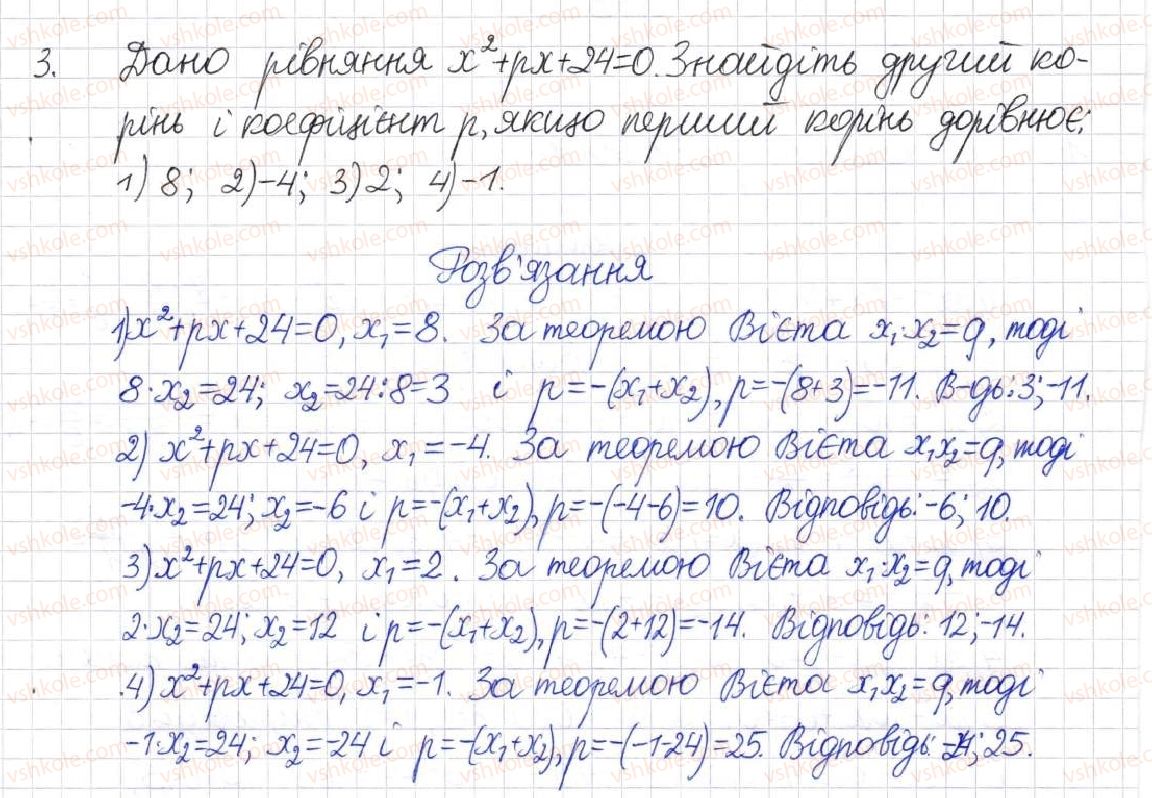 3. Дано рівняння x²+px+24=0. Знайдіть другий ко-
рінь і коефіцієнт p, якщо перший корінь дорівнює:
1) 8; 2) -4; 3) 2; 4) -1.
Розв'язання
1) x²+px+24=0, x₁=8. За теоремою Вієта x₁·x₂=q, тоді
8·x₂=24; x₂=24:8=3 і p=-(x₁+x₂), p=-(8+3)=-11. В-дь: 3; -11.
2) x²+px+24=0, x₁=-4. За теоремою Вієта x₁x₂=q, тоді
-4·x₂=24; x₂=-6 і p=-(x₁+x₂), p=-(-4-6)=10. Відповідь: -6; 10.
3) x²+px+24=0, x₁=2. За теоремою Вієта x₁·x₂=q, тоді
2·x₂=24; x₂=12 і p=-(x₁+x₂), p=-(2+12)=-14. Відповідь: 12; -14.
4) x²+px+24=0, x₁=-1. За теоремою Вієта x₁x₂=q, тоді
-1·x₂=24; x₂=-24 і p=-(x₁+x₂), p=-(-1-24)=25. Відповідь: -24; 25.
vshkole.com